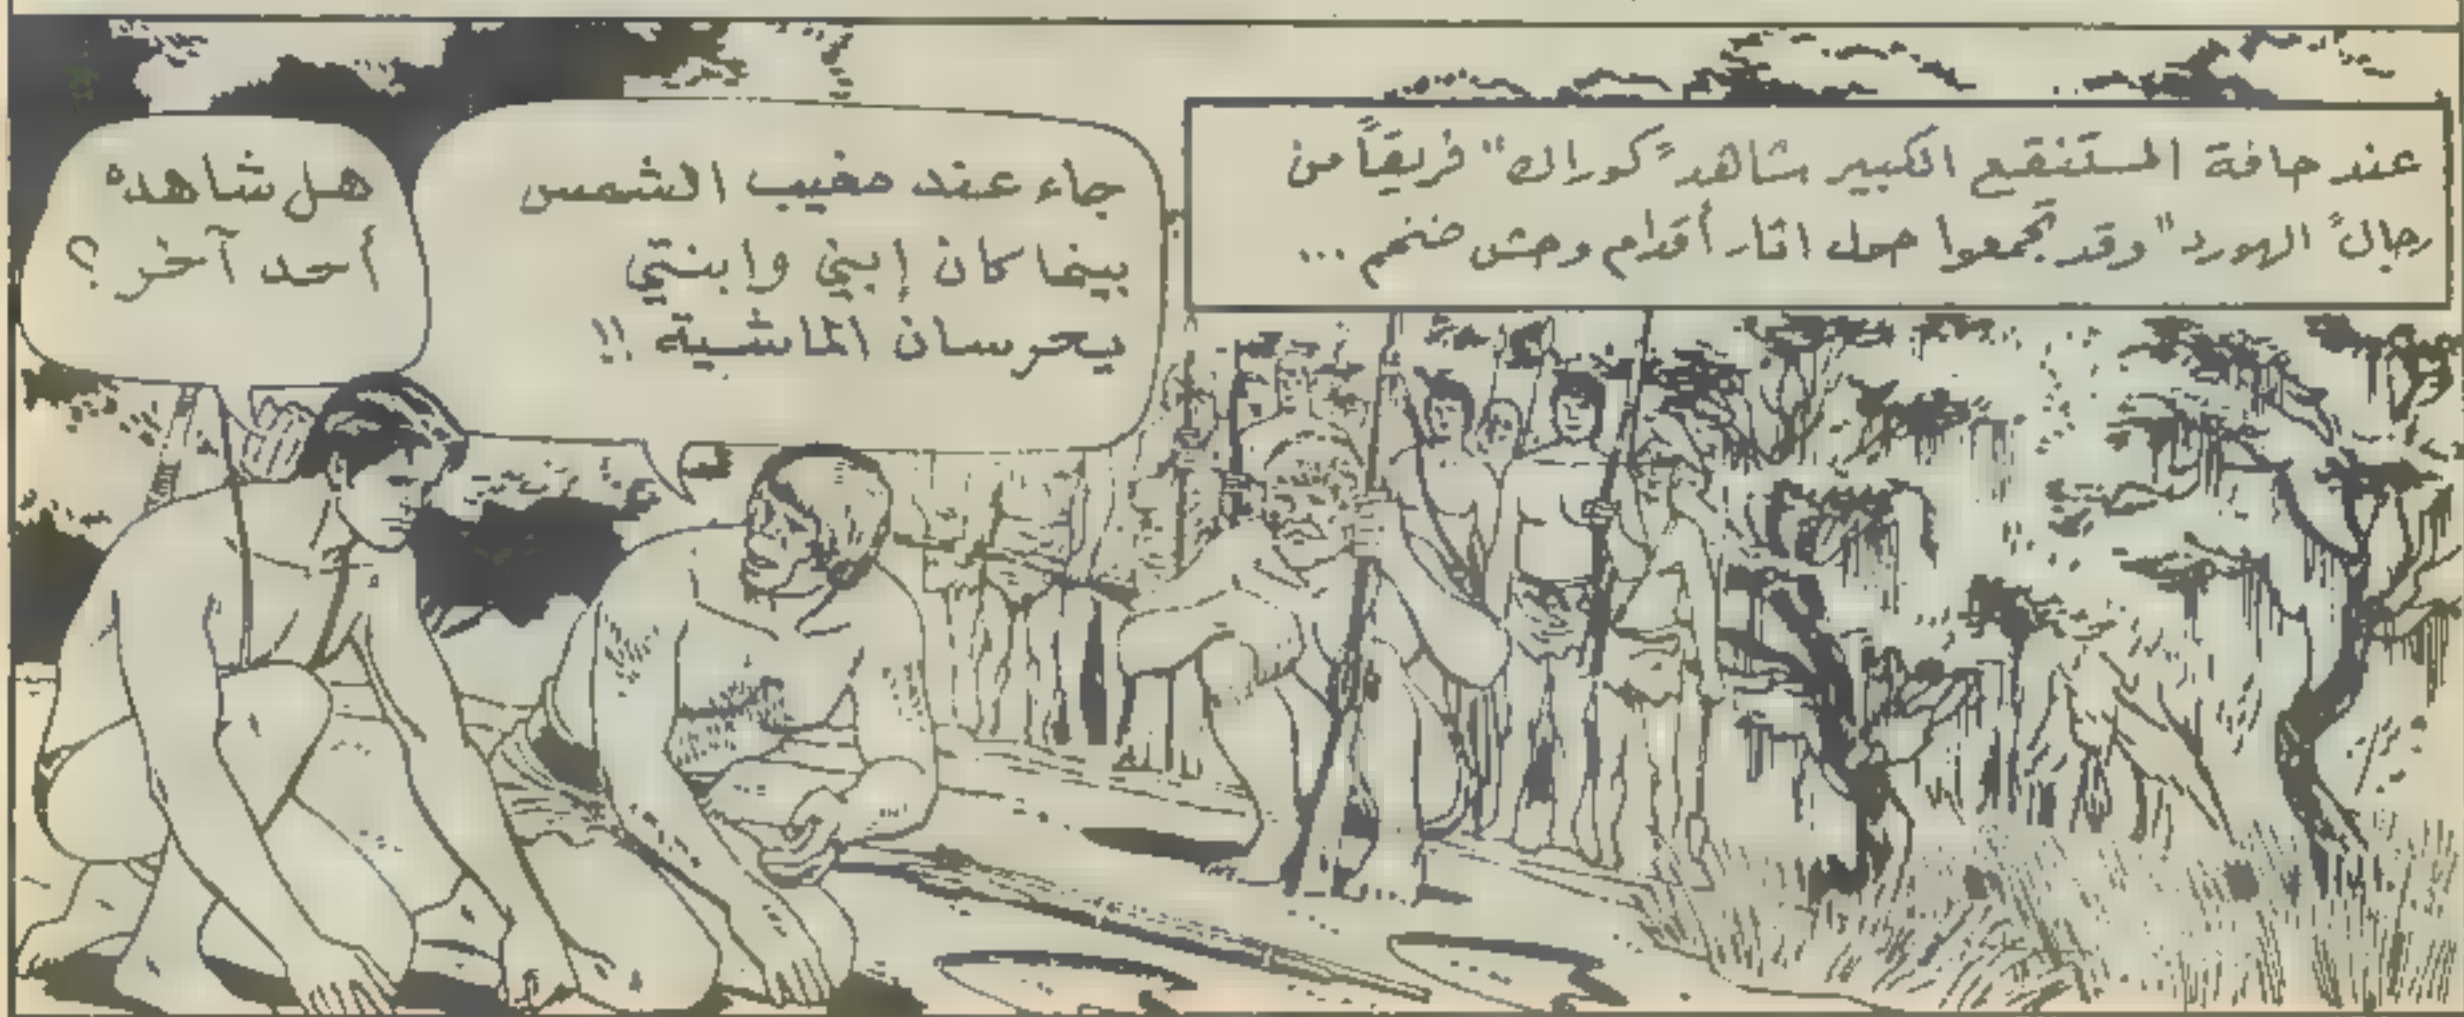 عند حافة المستنقع الكبير شاهد "كوراك" فريقاً من
رجال "الهورد" وقد تجمعوا حول اثار أقدام وحش ضخم ...
جاء عند مغيب الشمس
بينما كان إبني وابنتي
يحرسان الماشية !!
هل شاهده
أحد آخر ؟